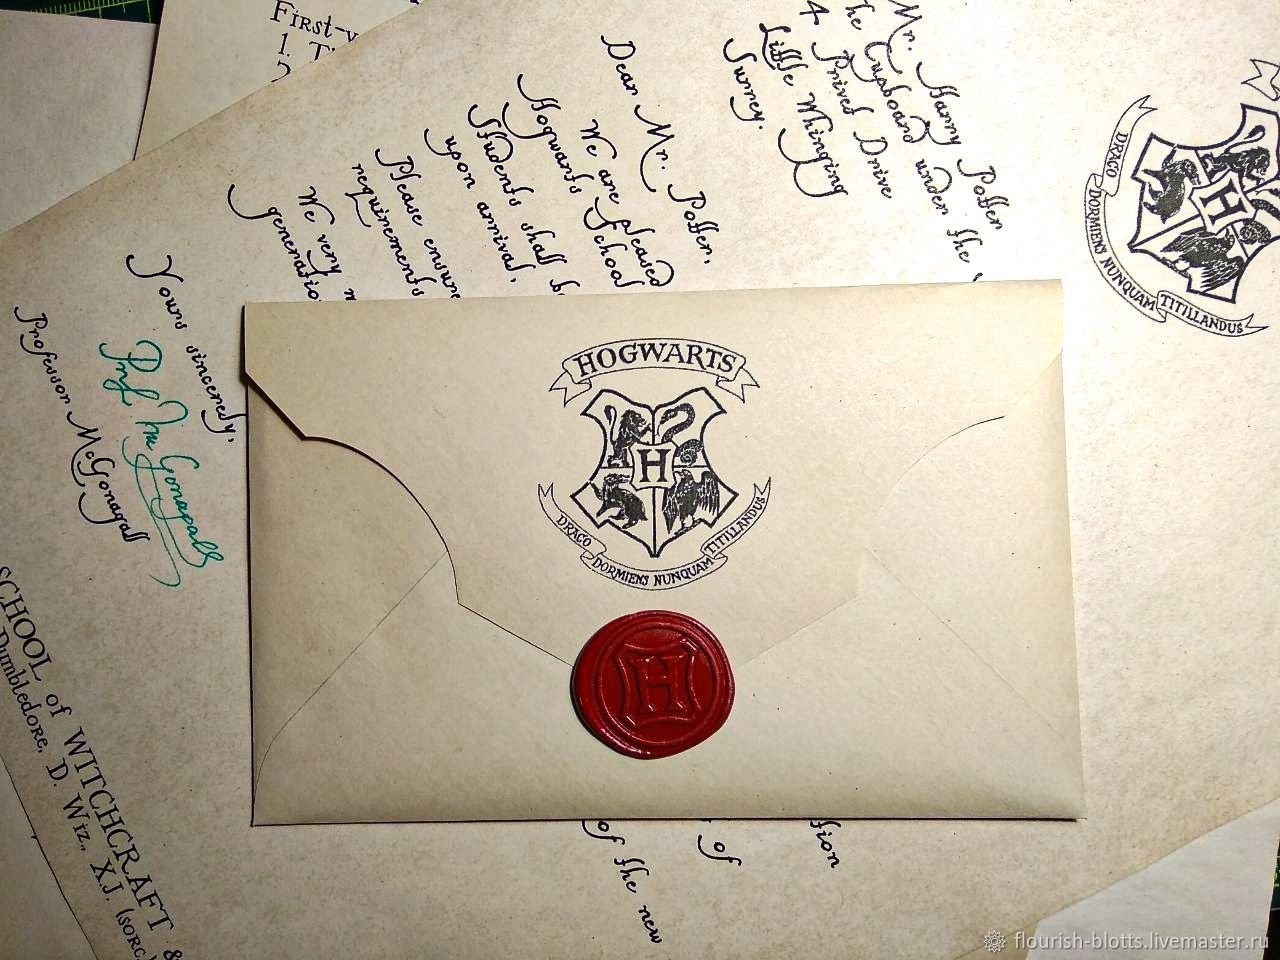 First-y
1. T
Mr. Harry Potter
The Cupboard under the
4 Privet Drive
Little Whinging
Surrey.
Dear Mr. Potter,
We are pleased
Hogwarts School
Students shall b
upon arrival,
Please ensure
requirements
We very m
generatio
Yours sincerely,
Prof McGonagall
Professor McGonagall
SCHOOL of WITCHCRAFT &
Dumbledore, D. Wiz., X.J. (sorc.
DRACO DORMIENS NUNQUAM TITILLANDUS
H
HOGWARTS
H
DRACO DORMIENS NUNQUAM TITILLANDUS
H
of
of the new
flourish-blotts.livemaster.ru